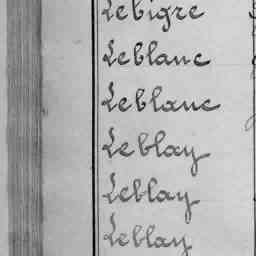 Lebigre
Leblanc
Leblanc
Leblay
Leblay
Leblay